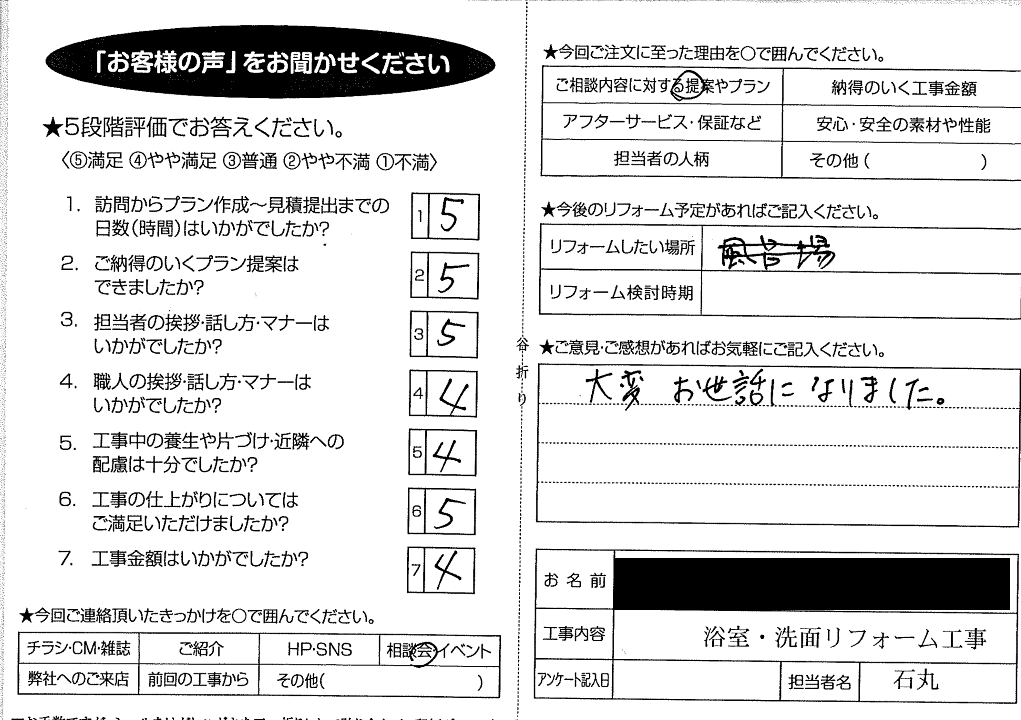 「お客様の声」をお聞かせください
★5段階評価でお答えください。
〈⑤満足 ④やや満足 ③普通 ②やや不満 ①不満〉
1. 訪問からプラン作成～見積提出までの
日数(時間)はいかがでしたか?
1 5
2. ご納得のいくプラン提案は
できましたか?
2 5
3. 担当者の挨拶・話し方・マナーは
いかがでしたか?
3 5
4. 職人の挨拶・話し方・マナーは
いかがでしたか?
4 4
5. 工事中の養生や片づけ・近隣への
配慮は十分でしたか?
5 4
6. 工事の仕上がりについては
ご満足いただけましたか?
6 5
7. 工事金額はいかがでしたか?
7 4
★今回ご連絡頂いたきっかけを○で囲んでください。
チラシ・CM・雑誌 ご紹介 HP・SNS 相談会イベント
弊社へのご来店 前回の工事から その他( )
谷折り
★今回ご注文に至った理由を○で囲んでください。
ご相談内容に対する提案やプラン 納得のいく工事金額
アフターサービス・保証など 安心・安全の素材や性能
担当者の人柄 その他( )
★今後のリフォーム予定があればご記入ください。
リフォームしたい場所 風呂場
リフォーム検討時期
★ご意見・ご感想があればお気軽にご記入ください。
大変 お世話に なりました。
お名前
工事内容 浴室・洗面リフォーム工事
アンケート記入日 担当者名 石丸